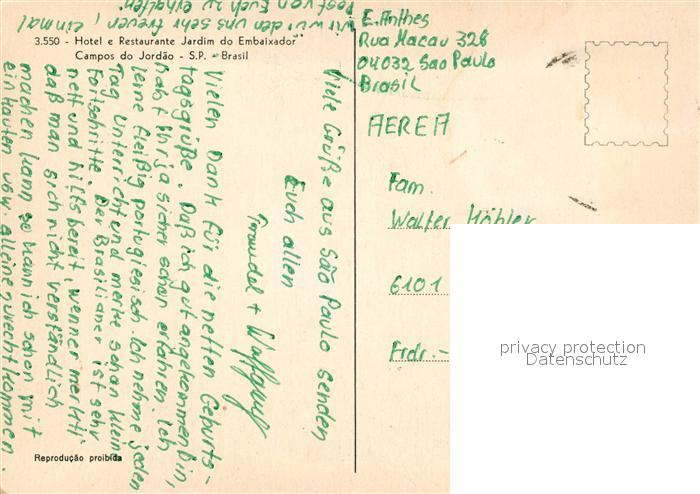 3.550 - Hotel e Restaurante Jardim do Embaixador
Campos do Jordão - S.P. - Brasil
Viele Grüße aus São Paulo senden
Euch allen
Traudel + Wolfgang
Vielen Dank für die netten Geburts-
tagsgrüße. Daß ich gut angekommen bin,
habt Ihr ja sicher schon erfahren. Ich
lerne fleißig portugiesisch. Ich nehme jeden
Tag Unterricht und merke schon kleine
Fortschritte. Der Brasilianer ist sehr
nett und hilfsbereit, wenn er merkt
daß man sich nicht verständlich
machen kann so kann ich schon mit
einkaufen usw. alleine zurechtkommen.
Wir würden uns sehr freuen, einmal
Post von Euch zu erhalten.
Reprodução proibida
E. Anthes
Rua Macau 328
04032 Sao Paulo
Brasil
AEREA
Fam.
Walter Köhler
6101
Frdr.-
privacy protection
Datenschutz